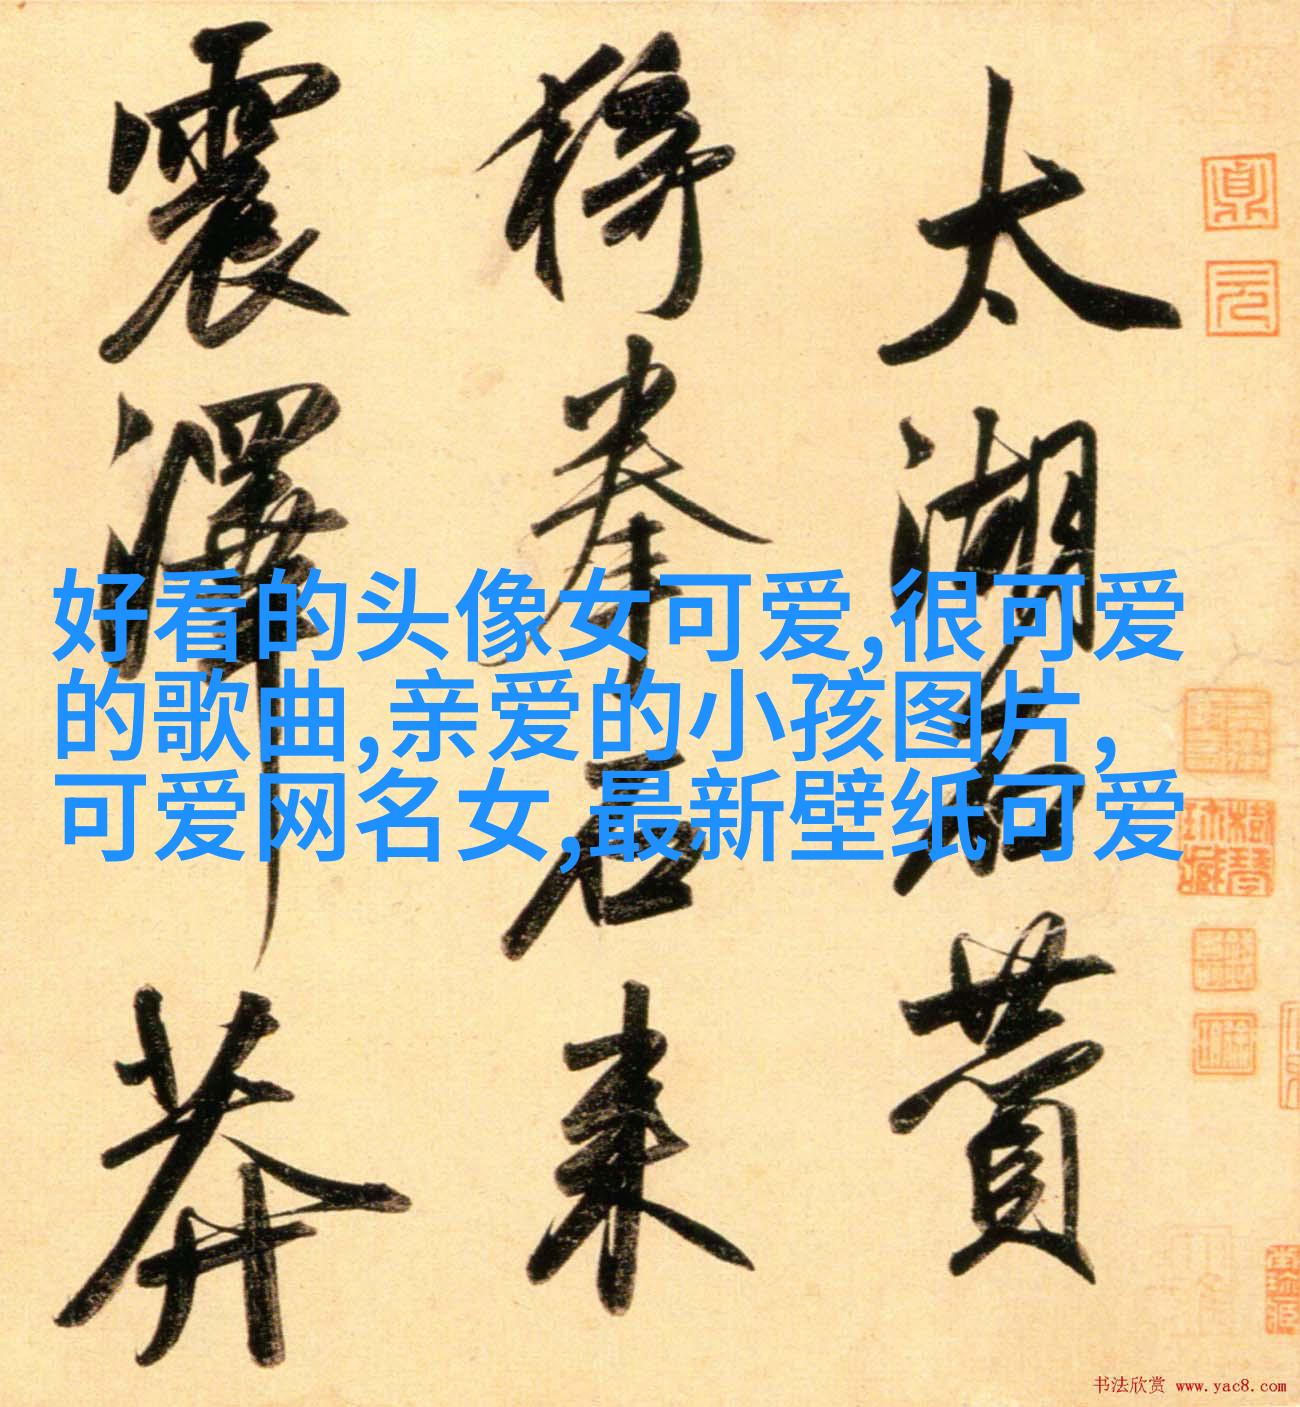 太湖石贊
猗拳石来
震澤莽
好看的头像女可爱,很可爱
的歌曲,亲爱的小孩图片,
可爱网名女,最新壁纸可爱
书法欣赏 www.yac8.com